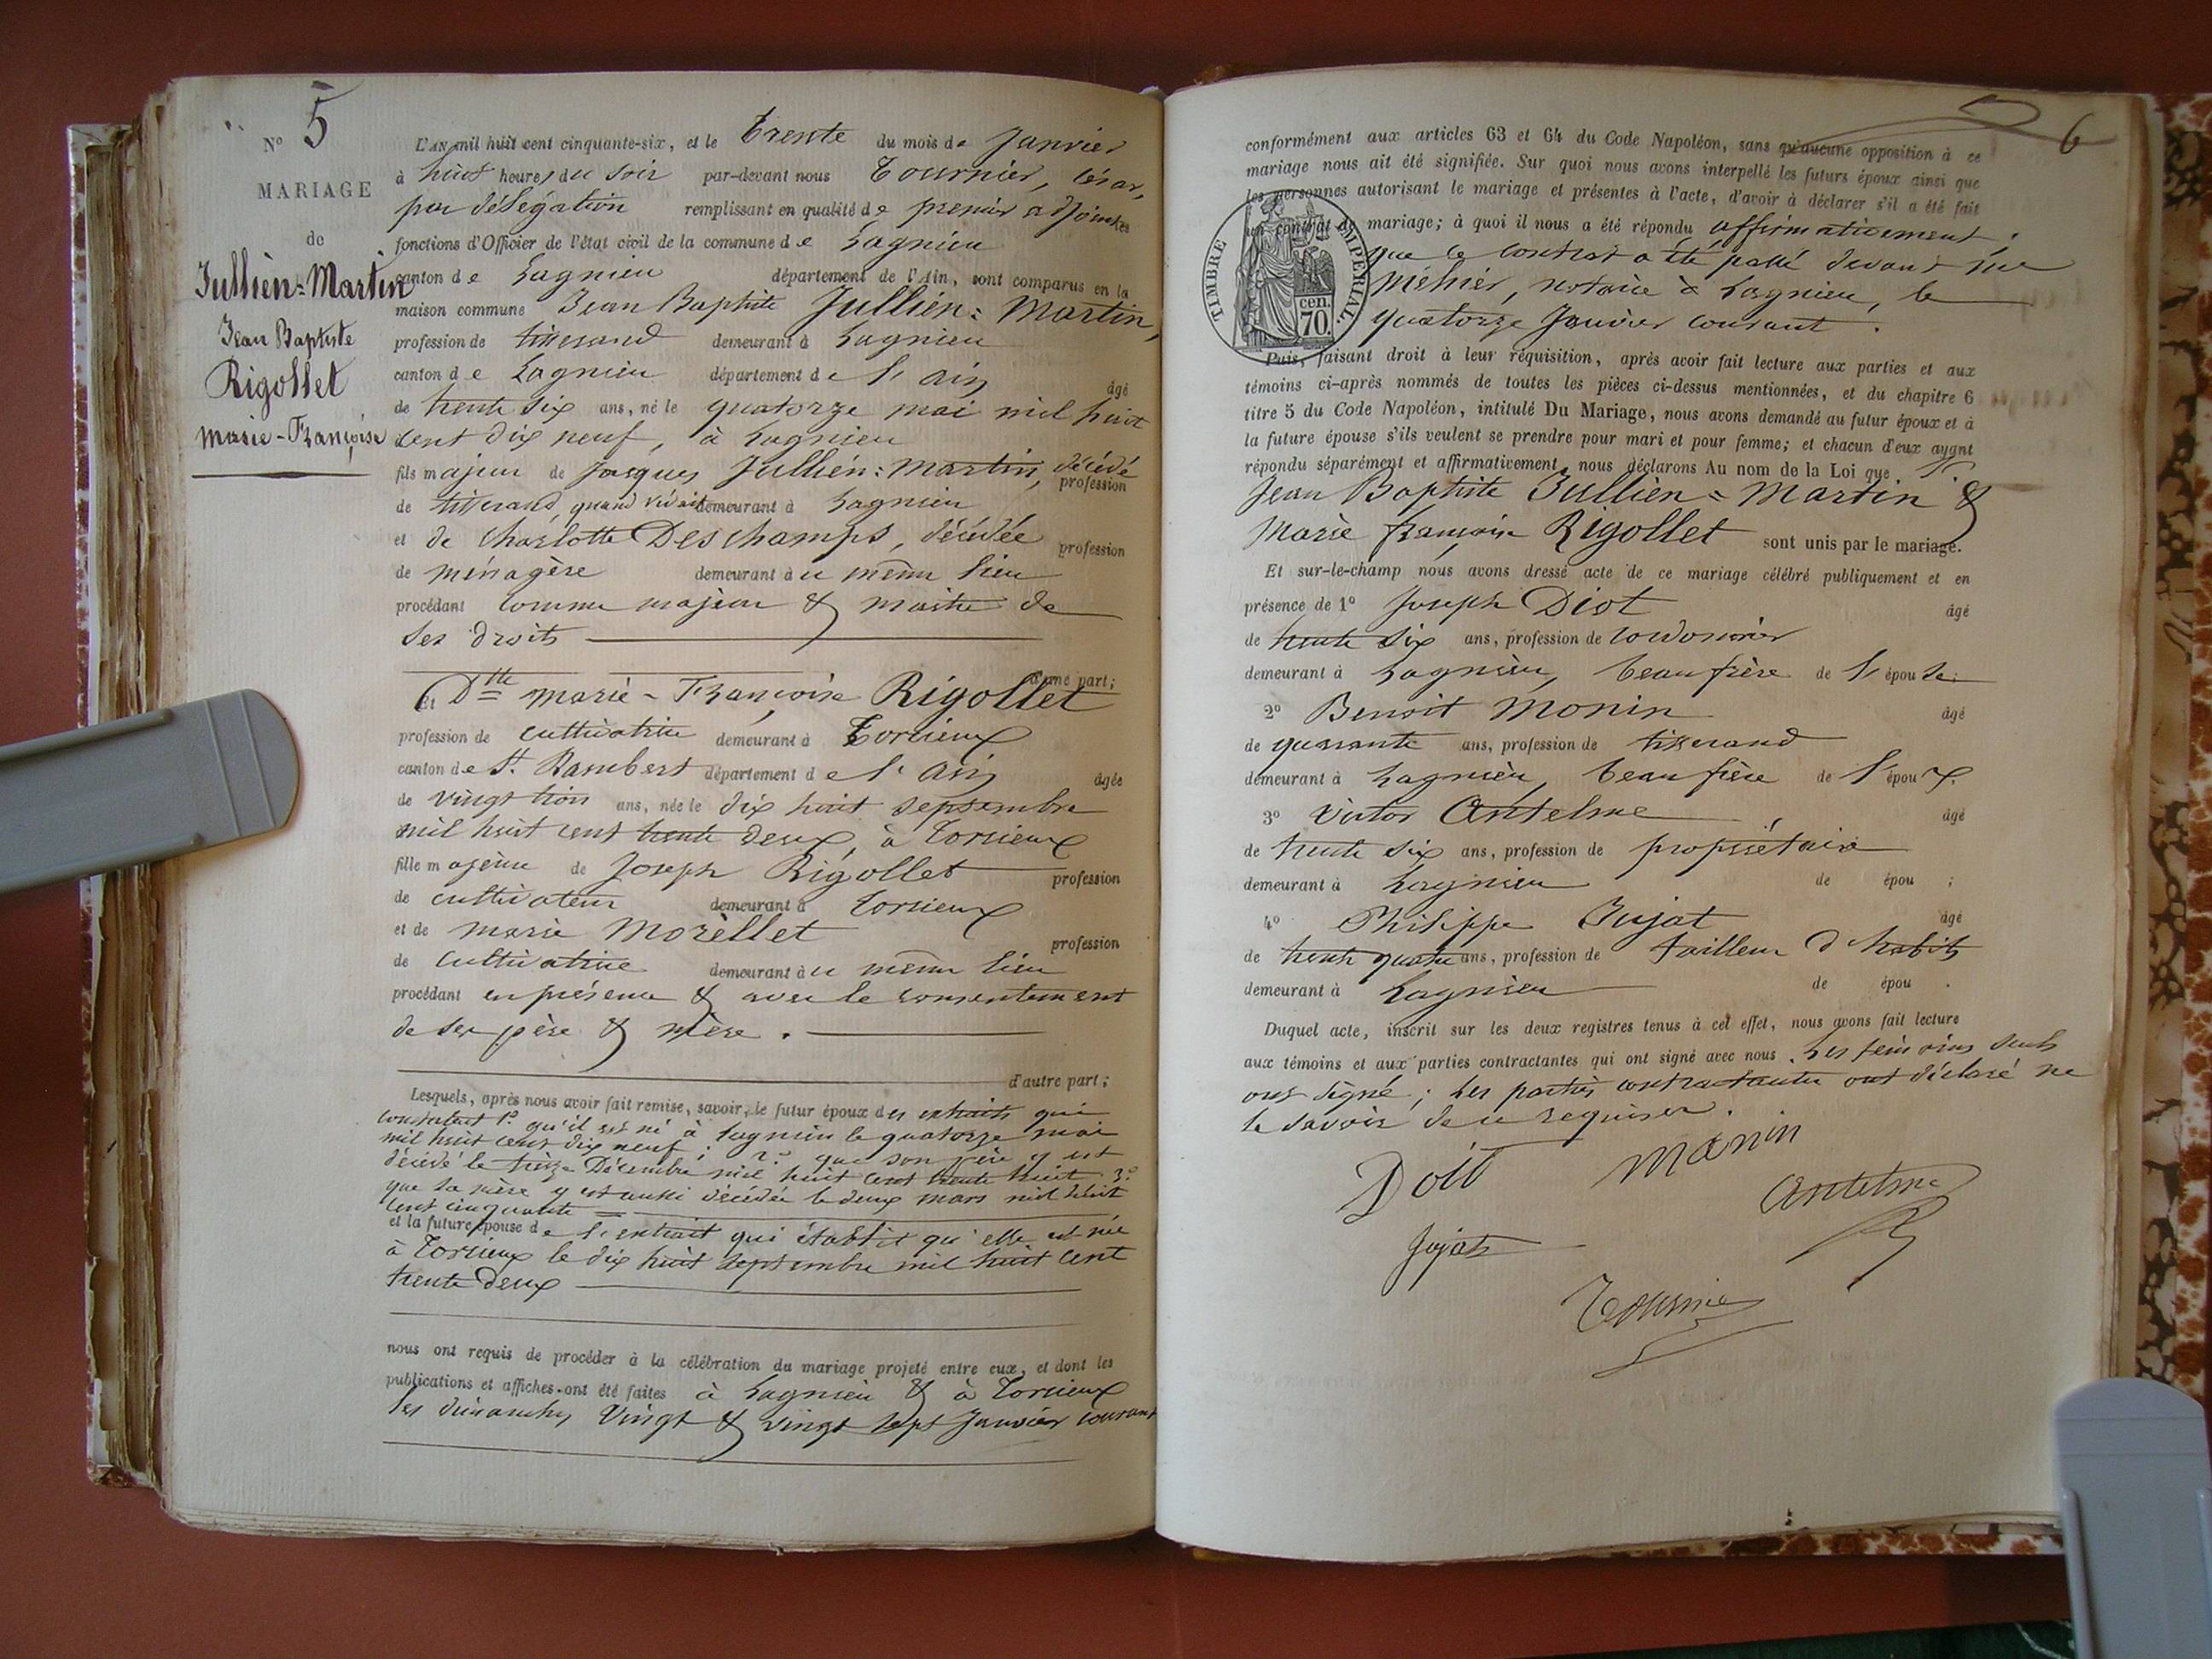 N° 5
MARIAGE
de
Jullien=Martin
Jean Baptiste
Rigollet
Marie-Françoise
L'AN mil huit cent cinquante-six, et le Trente du mois de Janvier
à huit heures du soir par-devant nous Tournier, César,
par délégation remplissant en qualité de premier adjoint les
fonctions d'Officier de l'état civil de la commune de Lagnieu
canton de Lagnieu département de l'Ain, sont comparus en la
maison commune Jean Baptiste Jullien=Martin,
profession de tisserand demeurant à Lagnieu
canton de Lagnieu département de l'ain âgé
de trente six ans, né le quatorze mai mil huit
cent dix neuf, à Lagnieu
fils majeur de Jacques Jullien=Martin, décédé profession
de tisserand, quand vivait demeurant à Lagnieu
et de Charlotte Deschamps, décédée profession
de ménagère demeurant à u même lieu
procédant comme majeur & maitre de
ses droits
d'une part;
Et Dlle Marie-Françoise Rigollet
profession de cultivatrice demeurant à Torcieux
canton de St. Rambert département de l'ain âgée
de vingt trois ans, née le dix huit septembre
mil huit cent trente deux, à Torcieux
fille majeure de Joseph Rigollet profession
de cultivateur demeurant à Torcieux
et de Marie Morellet profession
de cultivatrice demeurant à u même lieu
procédant en présence & avec le consentement
de ses père & mère.
d'autre part;
Lesquels, après nous avoir fait remise, savoir, le futur époux des extraits qui
constatent 1° qu'il est né à Lagnieu le quatorze mai
mil huit cent dix neuf; 2° que son père y est
décédé le treize Décembre mil huit cent trente huit 3°
que sa mère y est aussi décédée le deux mars mil huit
cent cinquante
et la future épouse de l'extrait qui établit qu'elle est née
à Torcieux le dix huit septembre mil huit cent
trente deux
nous ont requis de procéder à la célébration du mariage projeté entre eux, et dont les
publications et affiches ont été faites à Lagnieu & à Torcieux
les dimanches vingt & vingt sept Janvier courant
6
conformément aux articles 63 et 64 du Code Napoléon, sans qu'aucune opposition à ce
mariage nous ait été signifiée. Sur quoi nous avons interpellé les futurs époux ainsi que
les personnes autorisant le mariage et présentes à l'acte, d'avoir à déclarer s'il a été fait
un contrat de mariage; à quoi il nous a été répondu affirmativement,
que le contrat a été passé devant Me
Méhier, notaire à Lagnieu, le
quatorze Janvier courant.
TIMBRE IMPERIAL.
70 cen.
Puis, faisant droit à leur réquisition, après avoir fait lecture aux parties et aux
témoins ci-après nommés de toutes les pièces ci-dessus mentionnées, et du chapitre 6
titre 5 du Code Napoléon, intitulé Du Mariage, nous avons demandé au futur époux et à
la future épouse s'ils veulent se prendre pour mari et pour femme; et chacun d'eux ayant
répondu séparément et affirmativement, nous déclarons Au nom de la Loi que
Jean Baptiste Jullien=Martin &
Marie françoise Rigollet sont unis par le mariage.
Et sur-le-champ nous avons dressé acte de ce mariage célébré publiquement et en
présence de 1° Joseph Diot âgé
de trente six ans, profession de cordonnier
demeurant à Lagnieu, beau frère de l'épouse;
2° Benoit Monin âgé
de quarante ans, profession de tisserand
demeurant à Lagnieu, beau frère de l'époux.
3° Victor Antelme âgé
de trente six ans, profession de propriétaire
demeurant à Lagnieu de épou ;
4° Philippe Jujat âgé
de trente quatre ans, profession de tailleur d'habits
demeurant à Lagnieu de épou .
Duquel acte, inscrit sur les deux registres tenus à cet effet, nous avons fait lecture
aux témoins et aux parties contractantes qui ont signé avec nous. Les témoins seuls
ont signé; les parties contractantes ont déclaré ne
le savoir de ce requises.
Doit
Manin
Antelme
Jujat
Tournier